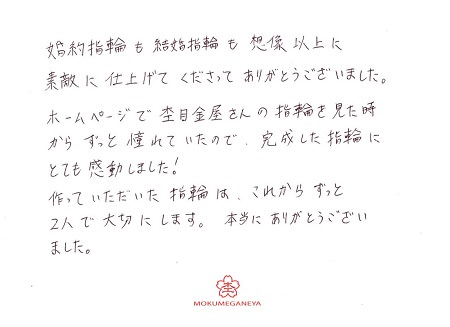 婚約指輪も結婚指輪も想像以上に
素敵に仕上げてくださってありがとうございました。
ホームページで杢目金屋さんの指輪を見た時
からずっと憧れていたので、完成した指輪に
とても感動しました!
作っていただいた指輪は、これからずっと
2人で大切にします。本当にありがとうござい
ました。
杢
MOKUMEGANEYA